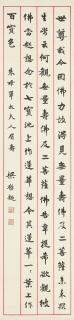 世尊我今因佛力故得見無量壽佛及二菩薩未來眾
生云何觀無量壽佛及二菩薩佛告韋提希欲觀彼
佛當起想念於七寶地上作蓮華想令其蓮華一一葉上作
百寶色
太夫人眉壽 梁啟超